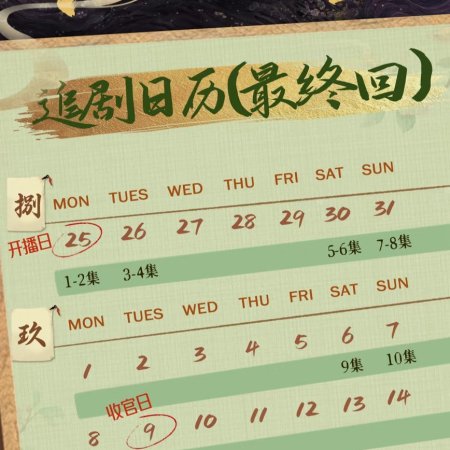 追剧日历(最终回)
捌
MON TUES WED THU FRI SAT SUN
开播日 25 26 27 28 29 30 31
1-2集 3-4集 5-6集 7-8集
玖
MON TUES WED THU FRI SAT SUN
1 2 3 4 5 6 7
9集 10集
收官日
8 9 10 11 12 13 14